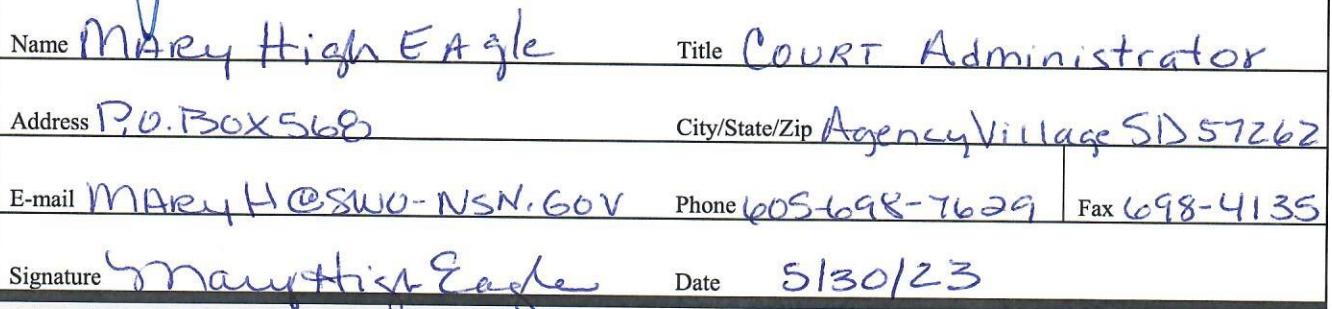 Name MARy High EAgle Title COURT Administrator
Address P.O. BOX 568 City/State/Zip Agency Village SD 57262
E-mail MARyH@SWO-NSN.GOV Phone 605-698-7629 Fax 698-4135
Signature Mary High Eagle Date 5/30/23